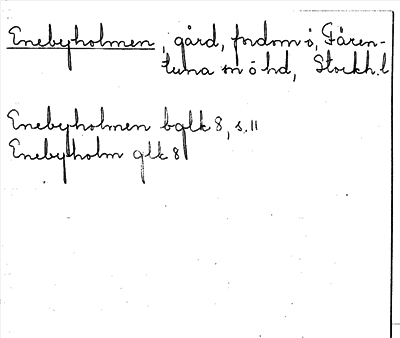 Enebyholmen, gård, fordom ö, Fären-
tuna sn o hd, Stockh. l
Enebyholmen bglk 8, s. 11
Enebyholm glk 8